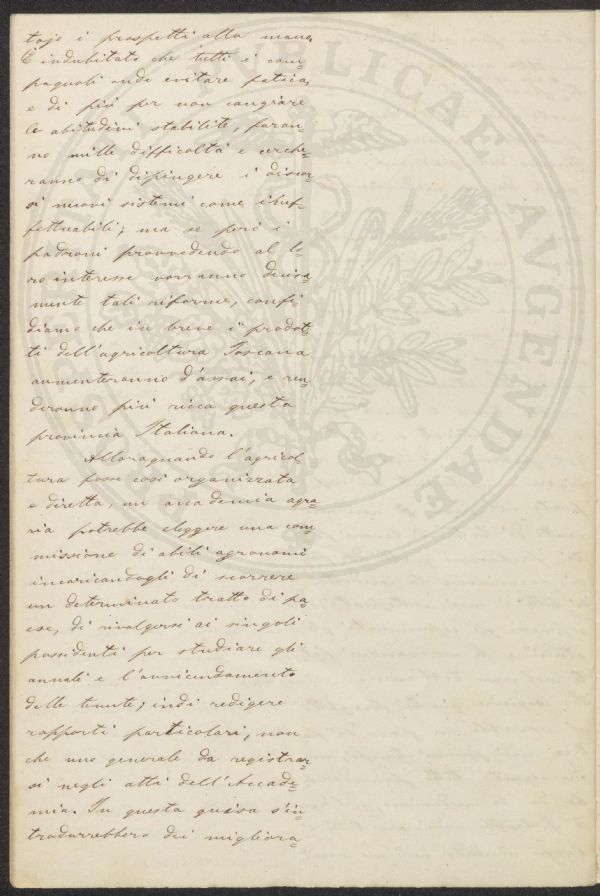 tojo i prospetti alla mano.
È indubitato che tutti i cam=
pagnoli onde evitare fatica,
e di più per non cangiare
le abitudini stabilite, faran=
no mille difficoltà e cerche=
ranno di dipingere i discor=
si nuovi sistemi come inef=
fettuabili; ma se però i
padroni provvedendo al lo=
ro interesse vorranno decisa=
mente tali riforme, confi=
diamo che in breve i prodot=
ti dell'agricoltura Toscana
aumenteranno d'assai, e ren=
deranno più ricca questa
provincia Italiana.
Alloraquando l'agricol=
tura fosse così organizzata
e diretta, un accademia agra=
ria potrebbe eleggere una com=
missione di abili agronomi
incaricandogli di scorrere
un determinato tratto di pa=
ese, di rivolgersi ai singoli
possidenti per studiare gli
annali e l'avvicendamento
delle tenute; indi redigere
rapporti particolari, non
che uno generale da registrar=
si negli atti dell'Accade=
mia. In questa guisa s'in=
trodurrebbero dei migliora=
SPEI PUBLICAE AVGENDAE